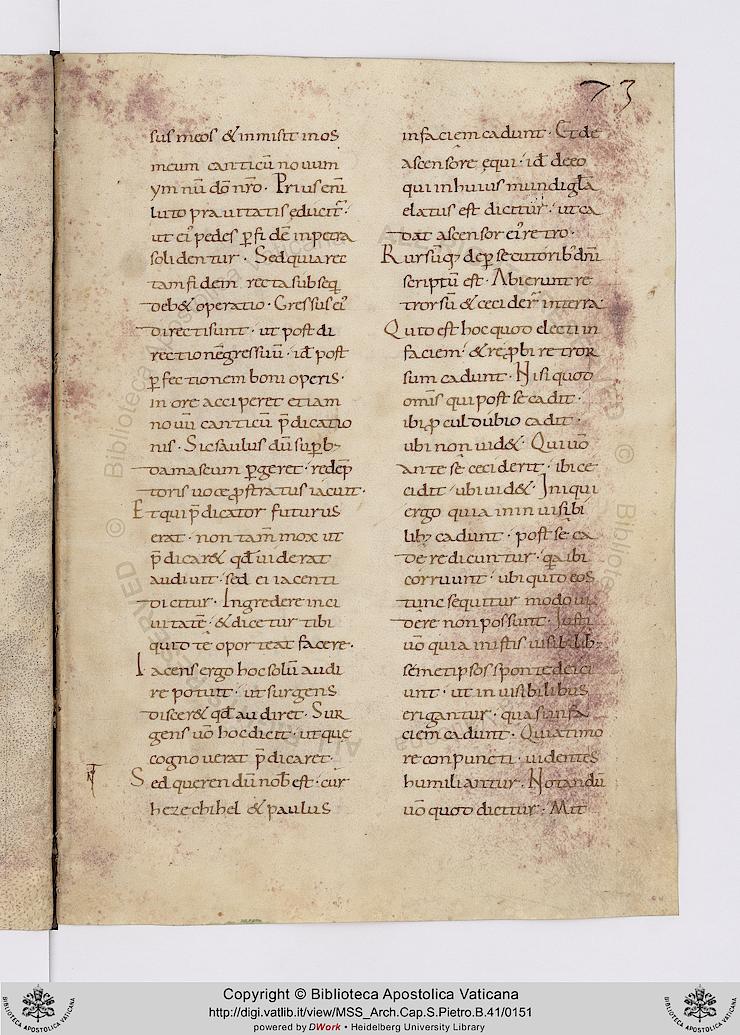 73
sus meos · & inmisit in os
meum canticū nouum
ymnū dō nr̄o · Prius enī
luto prauitatis educit᷑ ·
ut ei᷒ pedes ꝑ fidē in petra
solidentur · Sed quia rec
tam fidem recta subseq̄
deb& operatio · Gressus ei᷒
directi sunt · ut post di
rectionē gressuū · id̄ post
ꝑfectionem boni operis ·
in ore acciperet etiam
nouū canticū p̄dicatio
nis · Sic saulus dū suꝑb᷒
damascum ꝑgeret · redēp
toris uoce ꝓstratus iacuit ·
Et qui p̄dicator futurus
erat · non tam mox ut
p̄dicar& qd̄ uiderat
audiuit · sed ei iacenti
dicitur · Ingredere in ci
uitatē · & dicetur tibi
quid te oporteat facere ·
Iacens ergo hoc solū audi
re potuit · ut surgens
discer& qd̄ audiret · Sur
gens uō hoc dicit · ut que
cognouerat p̄dicaret ·
Sed querendū nob̄ est · cur
hezechihel & paulus
in faciem cadunt · Et de
ascensore equi · id̄ de eo
qui in huius mundi gl̄a
elatus est dicitur · ut ca
dat ascensor ei᷒ retro ·
Rursūq; de ꝑsecutorib᷒ dn̄i
scriptū est · Abierunt re
trorsū & cecider̄ in terra
Quid est hoc quod electi in
faciem · & reꝓbi retror
sum cadunt · Nisi quod
om̄is qui post se cadit ·
ibi ꝓculdubio cadit ·
ubi non uid& · Qui uō
ante sē ceciderit · ibi ce
cidit ubi uid& · Iniqui
ergo quia in inuisibi
lib; cadunt · post sē ca
dere dicuntur · q̄a ibi
corruunt · ubi quid eos
tunc sequitur modo ui
dere non possunt · Iusti
uō quia in istis uisibilib;
sēmetipsos sponte deici
unt · ut in uisibilibus
erigantur · quasi in fa
ciem cadunt · Quia timo
re conpuncti · uidentes
humiliantur · Notandū
uō quod dicitur · Mit
Copyright © Biblioteca Apostolica Vaticana
http://digi.vatlib.it/view/MSS_Arch.Cap.S.Pietro.B.41/0151
powered by DWork • Heidelberg University Library